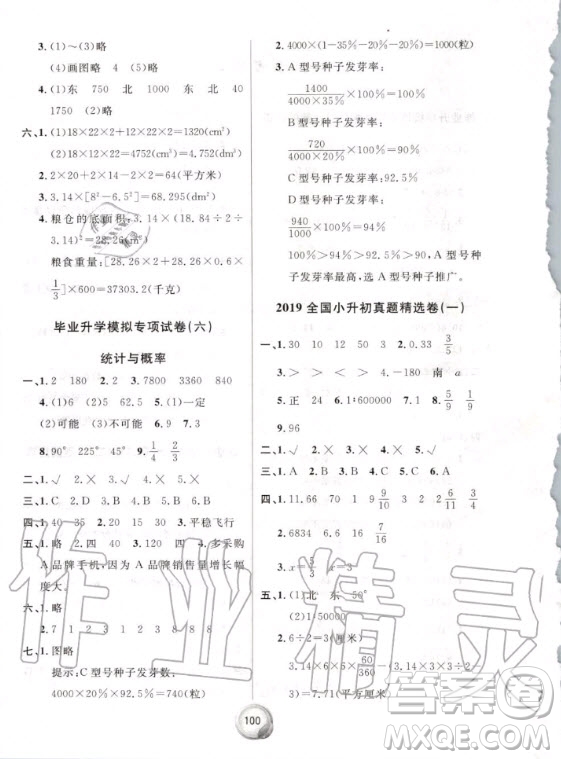 3.(1)～(3)略
(4)画图略 4 (5)略
4.(1)东 750 北 1000 东 北 40
1750 (2)略
六、1.(1)18×22×2+12×22×2=1320(cm²)
(2)18×12×22=4752(cm³)=4.752(dm³)
2.2×20+2×14-2×2=64(平方米)
3.3.14×[8²-6.5²]=68.295(dm²)
4.粮仓的底面积:3.14×(18.84÷2÷
3.14)²=28.26(m²)
粮食重量:[28.26×2+28.26×2×
1/3]×600=37303.2(千克)
毕业升学模拟专项试卷(六)
统计与概率
一、1.2 180 2.2 3.7800 3360 840
4.(1)6 (2)5 62.5 5.(1)一定
(2)可能 (3)不可能 6.9 7.3
8.90° 225° 45° 9.1/4 2/3
二、1.√ 2.× 3.× 4.× 5.√
三、1.C 2.D 3.B 4.B 5.A
四、1.40 35 2.40 15 3.40 4.平稳飞行
五、1.略 2.40 120 3.不能。 4.多采购
A品牌手机,因为A品牌销售量增长幅
度大。
六、1.略
2. 7 1 2 1 3 1 2 8 8 8
七、1.图略
提示:C型号种子发芽数,
4000×20%×92.5%=740(粒)
2.4000×(1-35%-20%-20%)=1000(粒)
3.A型号种子发芽率:
1400/(4000×35%)×100%=100%
B型号种子发芽率:
720/(4000×20%)×100%=90%
C型号种子发芽率:92.5%
D型号种子发芽率:
940/1000×100%=94%
100%>94%>92.5%>90%,A型号种
子发芽率最高,选A型号种子推广。
2019全国小升初真题精选卷(一)
一、1.30 10 12 50 3 2.0.33 3/5
3.> > < > 4.-180 南
5.正 24 6.1:600000 7.1 8.5/9 4/9
9.96
二、1.√ 2.× 3.√ 4.× 5.×
三、1.A 2.B 3.C 4.C 5.A
四、1.11.66 70 1 9 9/10 2 6/11 3/4
2.6834 16 6.4 7/16
五、1.(1)北 东 50°
2.6÷2=3(厘米)
100